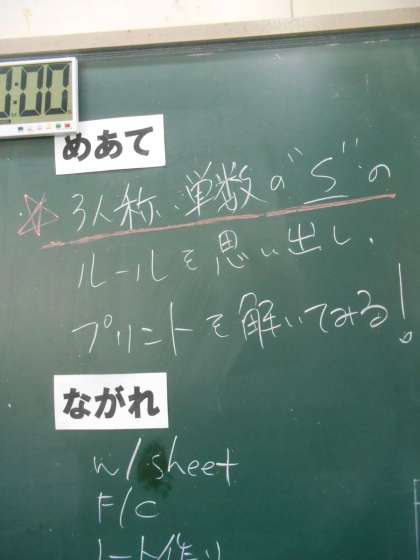 :00
めあて
☆ 3人称・単数の"S"の
ルールを思い出し、
プリントを解いてみる!
ながれ
w/sheet
F/C
ノート作り